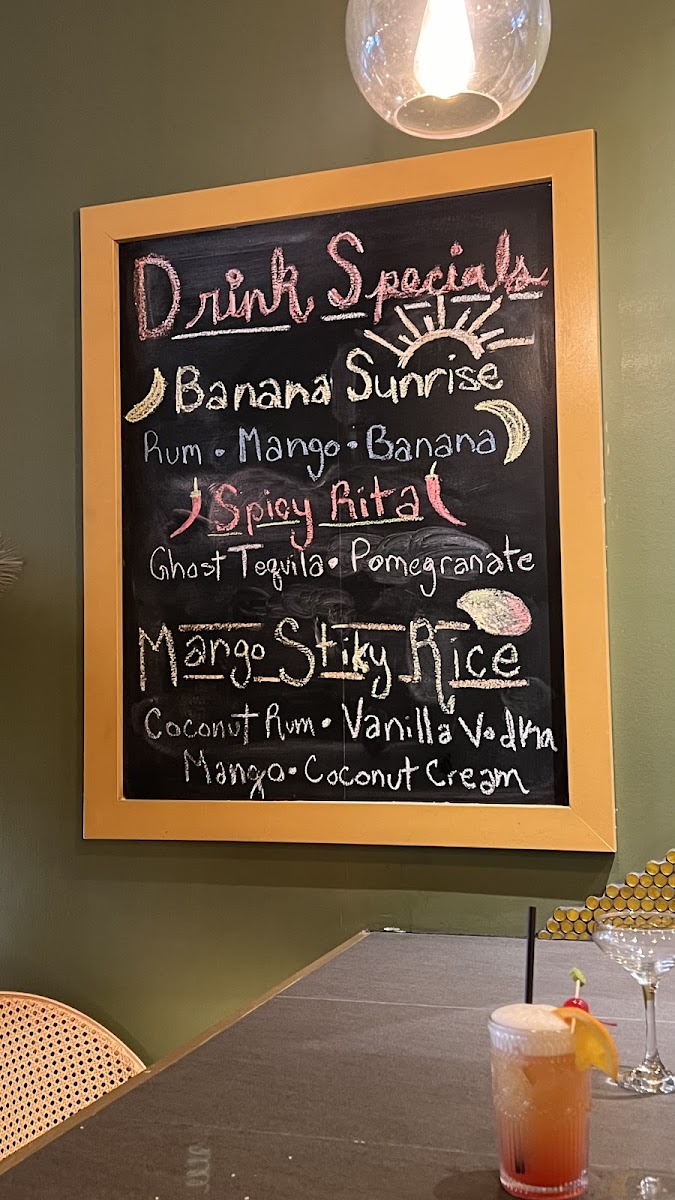 Drink Specials
Banana Sunrise
Rum • Mango • Banana
Spicy Rita
Ghost Tequila • Pomegranate
Mango Stiky Rice
Coconut Rum • Vanilla Vodka
Mango • Coconut Cream